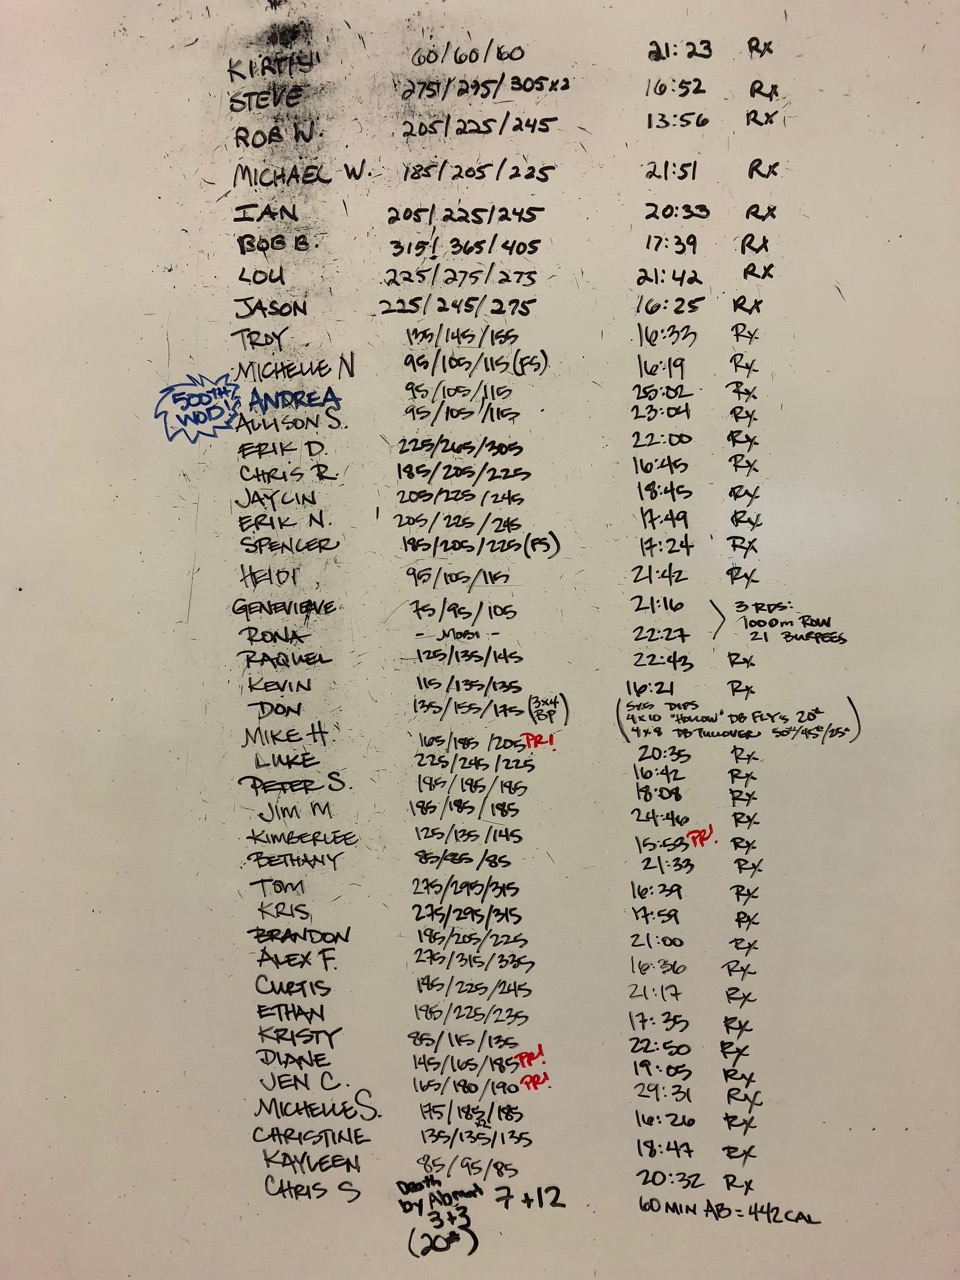 KIRTIS 60/60/60 21:23 Rx
STEVE 275/295/305x2 16:52 Rx
ROB W. 205/225/245 13:56 Rx
MICHAEL W. 185/205/225 21:51 Rx
IAN 205/225/245 20:33 Rx
BOB B. 315/365/405 17:39 Rx
LOU 225/275/275 21:42 Rx
JASON 225/245/275 16:25 Rx
TROY 135/145/155 16:33 Rx
MICHELLE N 95/105/115 (FS) 16:19 Rx
500TH WOD! ANDREA 95/105/115 25:02 Rx
ALLISON S. 95/105/115 23:04 Rx
ERIK D. 225/265/305 22:00 Rx
CHRIS R. 185/205/225 16:45 Rx
JAYLIN 205/225/245 18:45 Rx
ERIK N. 205/225/245 17:49 Rx
SPENCER 185/205/225 (FS) 17:24 Rx
HEIDI 95/105/115 21:42 Rx
GENEVIEVE 75/95/105 21:16 3 RDS:
1000m ROW
RONA - MOBI - 22:27 21 BURPEES
RAQUEL 125/135/145 22:43 Rx
KEVIN 115/135/135 16:21 Rx
DON 135/155/175 (3x4 BP) (5x5 DIPS
4x10 "HOLLOW" DB FLY'S 20#
4x8 DB PULLOVER 50#/45#/25#)
MIKE H. 165/185/205 PR! 20:35 Rx
LUKE 225/245/225 16:42 Rx
PETER S. 185/185/185 18:08 Rx
JIM M 185/185/185 24:46 Rx
KIMBERLEE 125/135/145 15:53 PR! Rx
BETHANY 85/85/85 21:33 Rx
TOM 275/295/315 16:39 Rx
KRIS 275/295/315 17:59 Rx
BRANDON 185/205/225 21:00 Rx
ALEX F. 275/315/335 16:36 Rx
CURTIS 185/225/245 21:17 Rx
ETHAN 185/225/235 17:35 Rx
KRISTY 85/115/135 22:50 Rx
DIANE 145/165/185 PR! 19:05 Rx
JEN C. 165/180/190 PR! 29:31 Rx
MICHELLE S. 175/185/185 16:26 Rx
CHRISTINE 135/135/135 18:47 Rx
KAYLEEN 85/95/85 20:32 Rx
CHRIS S Death by Abmat 7+12 60 MIN AB = 442 CAL
3+3
(20#)